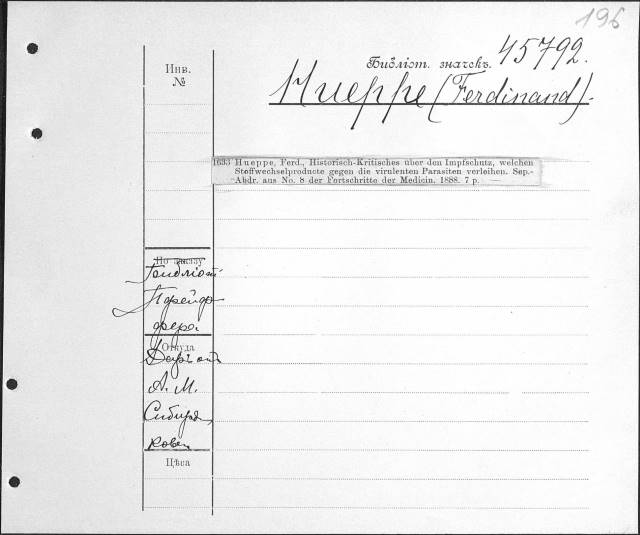 196
Библіот. значекъ. 45792.
Инв.
№
Hueppe (Ferdinand).
1633 Hueppe, Ferd., Historisch-Kritisches über den Impfschutz, welchen
Stoffwechselproducte gegen die virulenten Parasiten verleihen. Sep.-
Abdr. aus No. 8 der Fortschritte der Medicin. 1888. 7 p. —
По заказу
Библіот
Пфейф
фера
Откуда
Даръ от
А. М.
Сибиря
кова
Цѣна